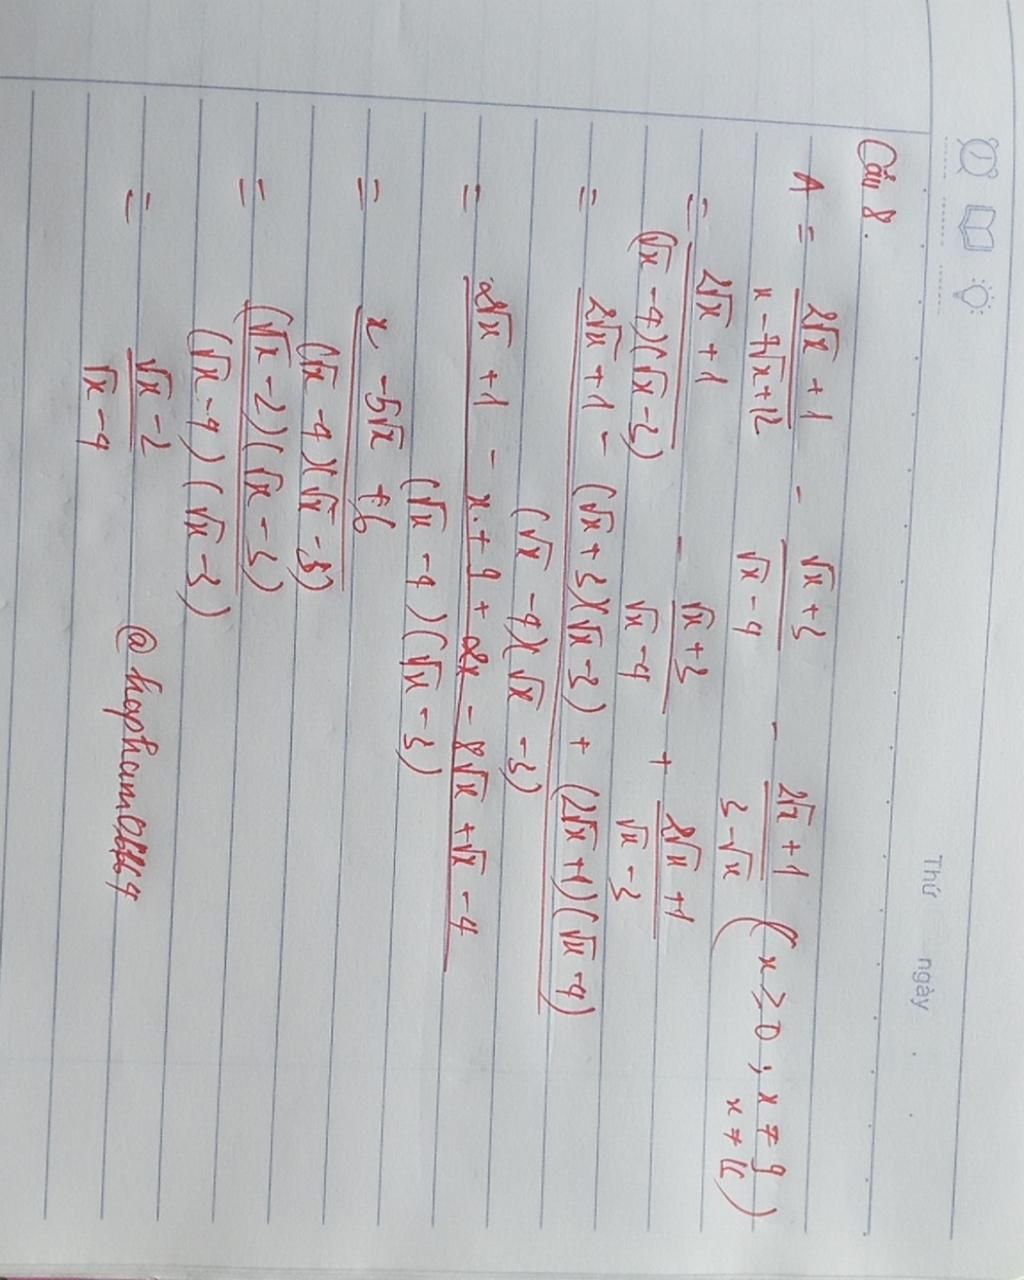 Thứ ngày
Câu 8.
A = (2√x + 1)/(x - 7√x + 12) - (√x + 3)/(√x - 4) - (2√x + 1)/(3 - √x) (x ≥ 0 ; x ≠ 9 x ≠ 16)
= (2√x + 1)/((√x - 4)(√x - 3)) - (√x + 3)/(√x - 4) + (2√x + 1)/(√x - 3)
= (2√x + 1 - (√x + 3)(√x - 3) + (2√x + 1)(√x - 4))/((√x - 4)(√x - 3))
= (2√x + 1 - x + 9 + 2x - 8√x + √x - 4)/((√x - 4)(√x - 3))
= (x - 5√x + 6)/((√x - 4)(√x - 3))
= ((√x - 2)(√x - 3))/((√x - 4)(√x - 3))
= (√x - 2)/(√x - 4)